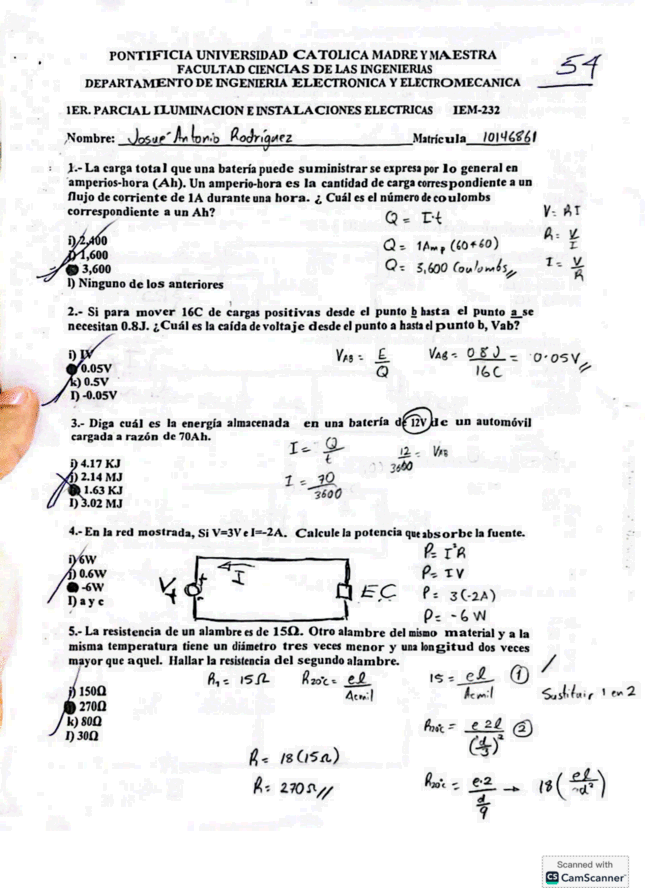 PONTIFICIA UNIVERSIDAD CATOLICA MADRE Y MAESTRA
FACULTAD CIENCIAS DE LAS INGENIERIAS
DEPARTAMENTO DE INGENIERIA ELECTRONICA Y ELECTROMECANICA
54
1ER. PARCIAL ILUMINACION E INSTALACIONES ELECTRICAS IEM-232
Nombre: Josué Antonio Rodríguez Matrícula 10146861
1.- La carga total que una batería puede suministrar se expresa por lo general en
amperios-hora (Ah). Un amperio-hora es la cantidad de carga correspondiente a un
flujo de corriente de 1A durante una hora. ¿ Cuál es el número de coulombs
correspondiente a un Ah?
Q = I·t V = RI
i) 2,400 Q = 1Amp (60*60) R = V/I
j) 1,600 Q = 3,600 Coulombs I = V/R
3,600
l) Ninguno de los anteriores
2.- Si para mover 16C de cargas positivas desde el punto b hasta el punto a se
necesitan 0.8J. ¿Cuál es la caída de voltaje desde el punto a hasta el punto b, Vab?
i) 1V VAB = E/Q VAB = 0.8J/16C = 0.05V
0.05V
k) 0.5V
l) -0.05V
3.- Diga cuál es la energía almacenada en una batería de 12V de un automóvil
cargada a razón de 70Ah.
I = Q/t 12/3600 = VAB
i) 4.17 KJ
j) 2.14 MJ I = 70/3600
1.63 KJ
l) 3.02 MJ
4.- En la red mostrada, Si V=3V e I=-2A. Calcule la potencia que absorbe la fuente.
i) 6W P = I²R
j) 0.6W P = IV
-6W P = 3(-2A)
l) a y c P = -6W
V + I E.C
5.- La resistencia de un alambre es de 15Ω. Otro alambre del mismo material y a la
misma temperatura tiene un diámetro tres veces menor y una longitud dos veces
mayor que aquel. Hallar la resistencia del segundo alambre.
R1 = 15Ω R20°C = el/Acmil 15 = el/Acmil ①
i) 150Ω Sustituir 1 en 2
270Ω R20°C = e2l/(d/3)² ②
k) 80Ω
l) 30Ω
R = 18(15Ω)
R = 270Ω R20°C = e·2/d/9 → 18(el/d²)
Scanned with
CS CamScanner